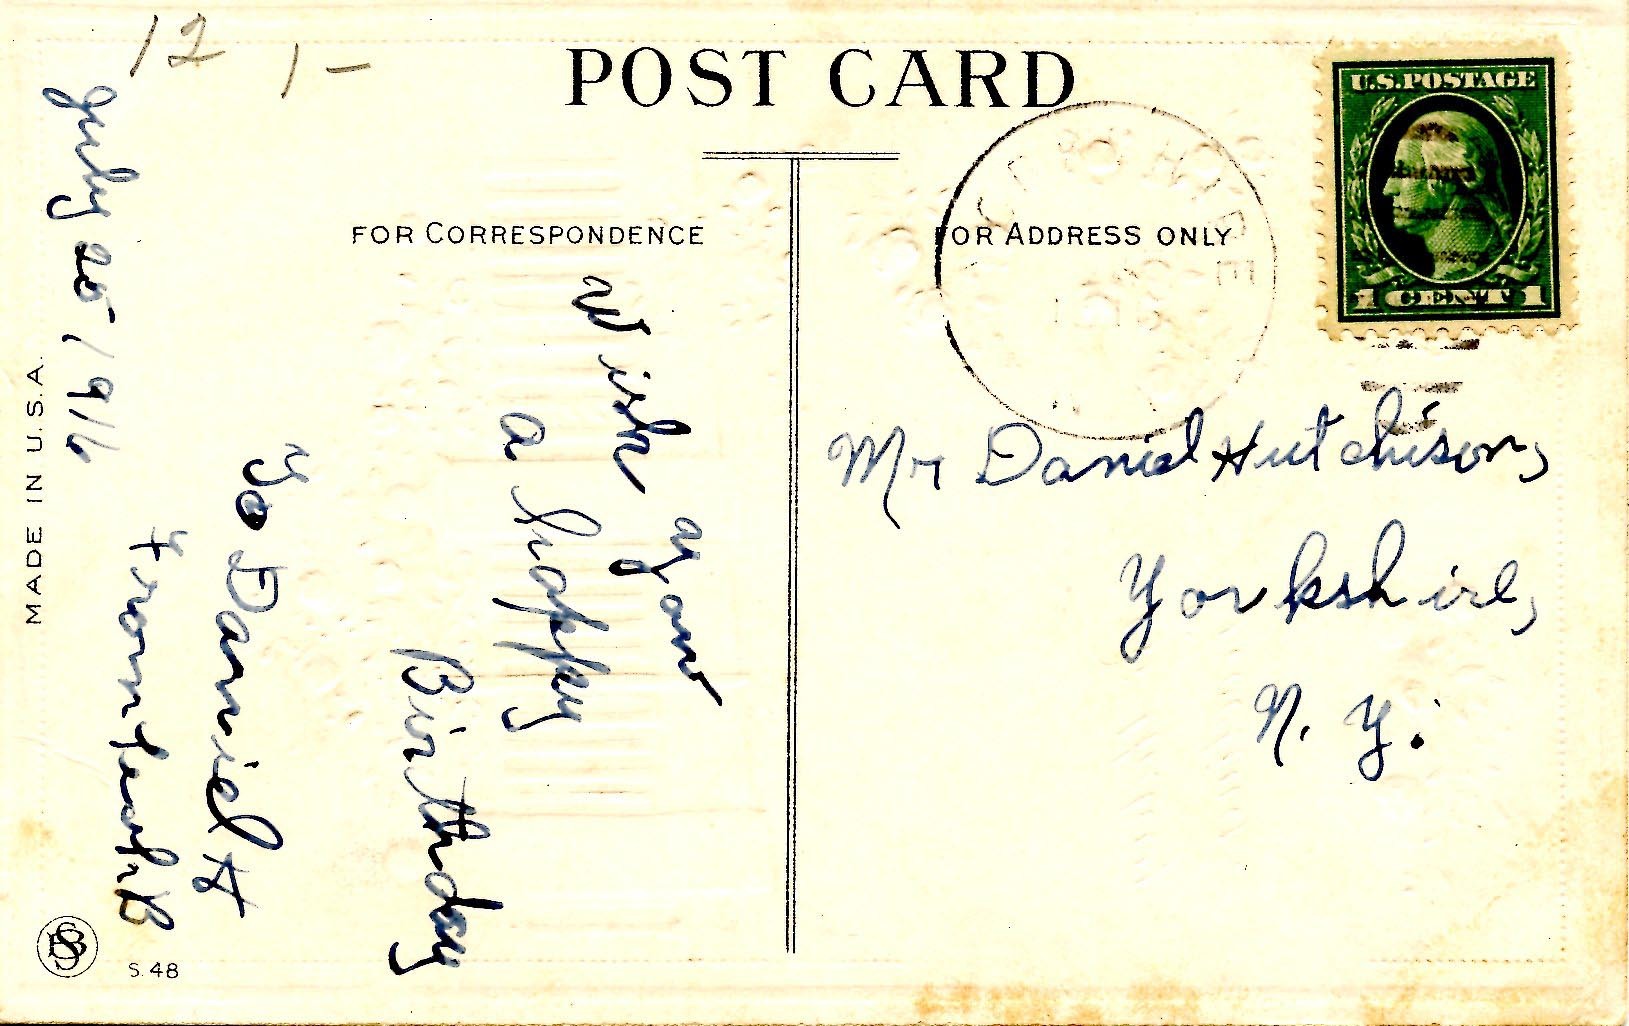 12 1-
POST CARD
U.S.POSTAGE
1 CENT 1
FOR CORRESPONDENCE
FOR ADDRESS ONLY
Wish
you
a happy
Birthday
To Daniel H
From
B
July 25 1916
Mr Daniel Hutchison,
Yorkshire,
N. Y.
MADE IN U.S.A.
S. 48